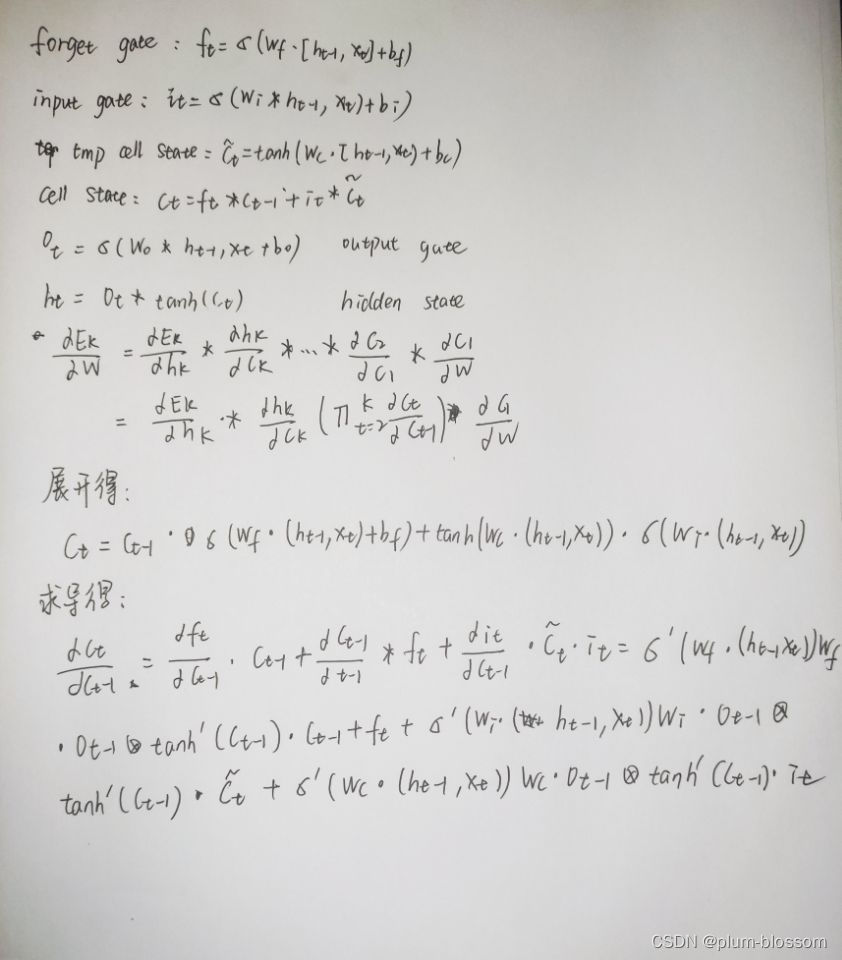 forget gate : ft = σ(Wf · [ht-1, xt] + bf)
input gate : it = σ(Wi * ht-1, xt) + bi)
tmp cell state = C̃t = tanh(Wc · [ht-1, xt) + bc)
cell state : Ct = ft * Ct-1 + it * C̃t
Ot = σ(Wo * ht-1, xt + bo) output gate
ht = Ot * tanh(Ct) hidden state
∂Ek/∂W = ∂Ek/∂hk * ∂hk/∂Ck * ... * ∂C2/∂C1 * ∂C1/∂W
= ∂Ek/∂hk · * ∂hk/∂Ck (∏ k t=2 ∂Ct/∂Ct-1) ∂C1/∂W
展开得:
Ct = Ct-1 · σ(Wf · (ht-1, xt) + bf) + tanh(Wc · (ht-1, xt)) · σ(Wi · (ht-1, xt))
求导得:
∂Ct/∂Ct-1 = ∂ft/∂Ct-1 · Ct-1 + ∂Ct-1/∂t-1 * ft + ∂it/∂Ct-1 · C̃t · it = σ'(Wf · (ht-1 xt)) Wf
· Ot-1 ⊗ tanh'(Ct-1) · Ct-1 + ft + σ'(Wi · (ht-1, xt)) Wi · Ot-1 ⊗
tanh'(Ct-1) · C̃t + σ'(Wc · (ht-1, xt)) Wc · Ot-1 ⊗ tanh'(Ct-1) · it
CSDN @plum-blossom